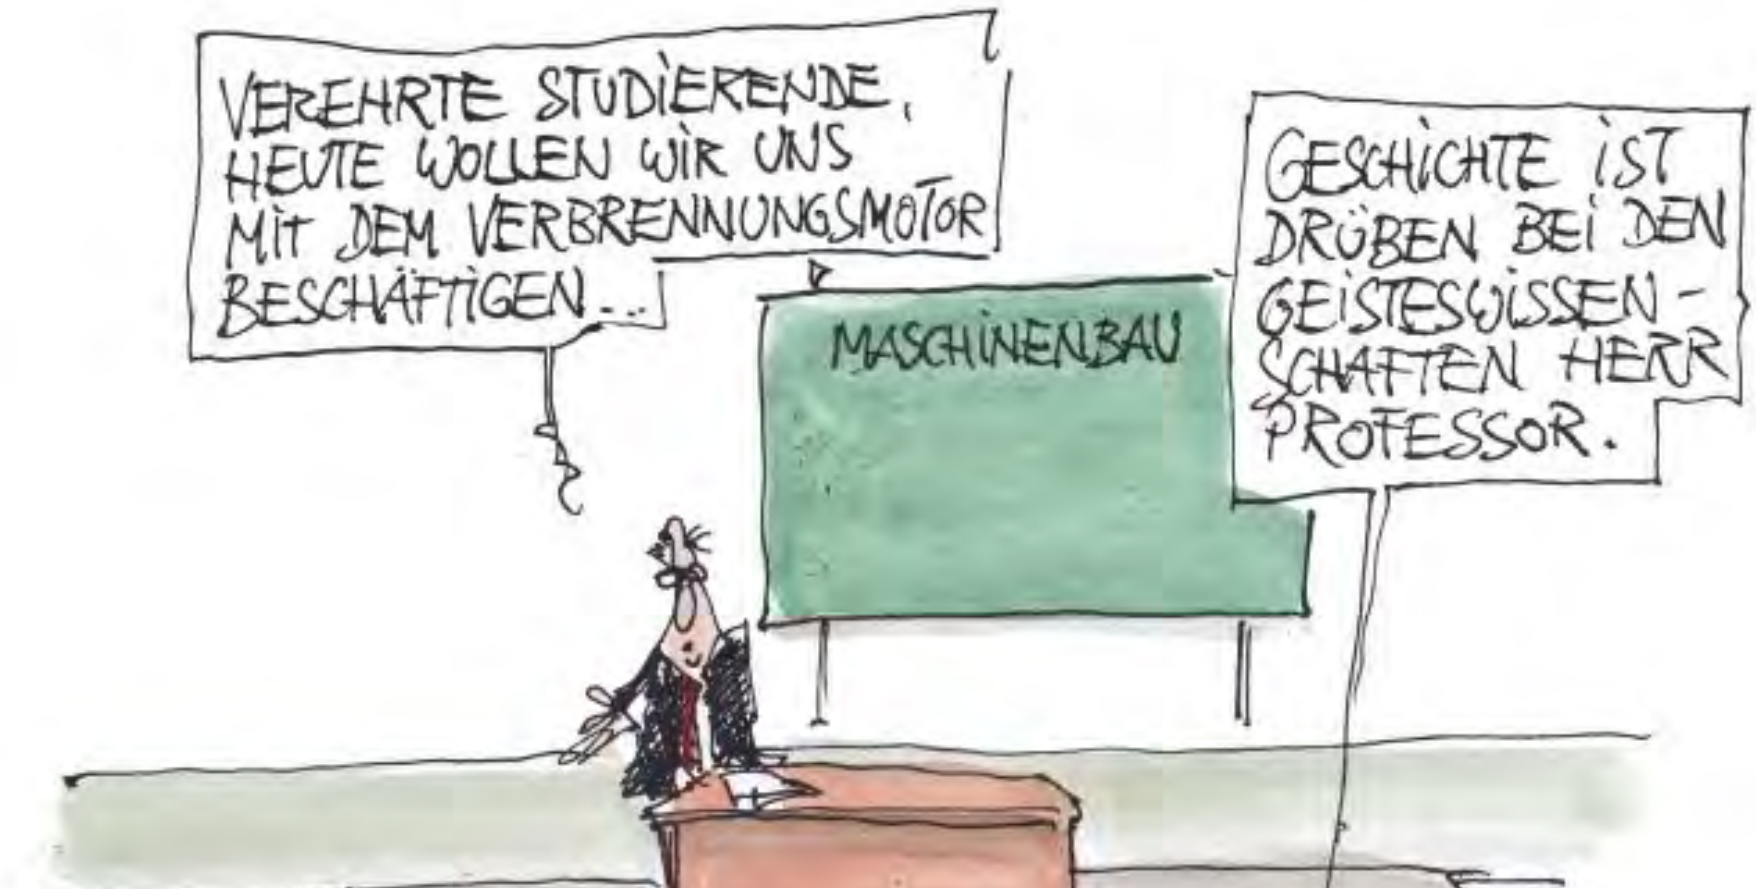 VEREHRTE STUDIERENDE,
HEUTE WOLLEN WIR UNS
MIT DEM VERBRENNUNGSMOTOR
BESCHÄFTIGEN...
MASCHINENBAU
GESCHICHTE IST
DRÜBEN BEI DEN
GEISTESWISSEN-
SCHAFTEN HERR
PROFESSOR.